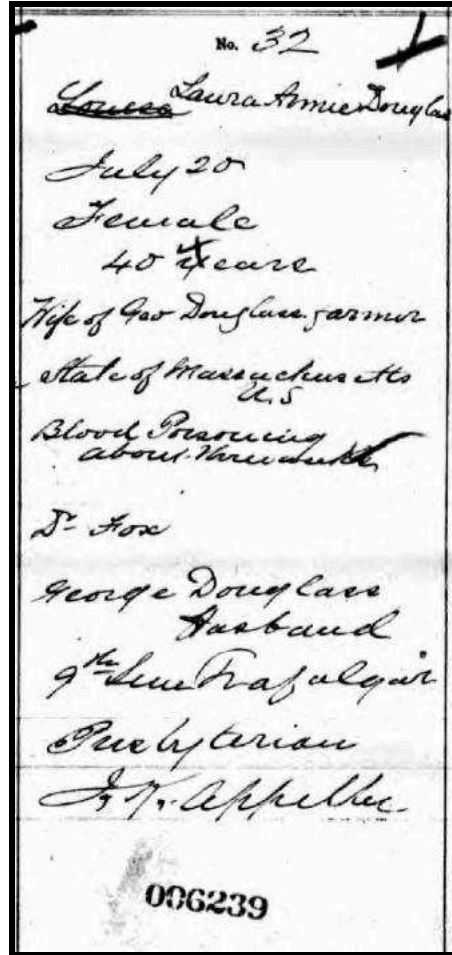 No. 32
Louesa Laura Annie Douglas
July 20
Female
40 Years
Wife of Geo Douglass farmer
State of Massachusetts
U.S
Blood Poisoning
about three weeks
Dr Fox
George Douglass
Husband
9th Line Trafalgar
Presbyterian
J. K. Appelbe
006239